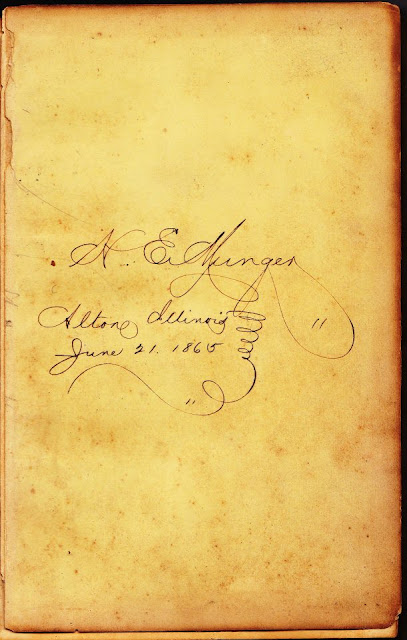 N. E. Munger
Alton, Illinois
June 21. 1865